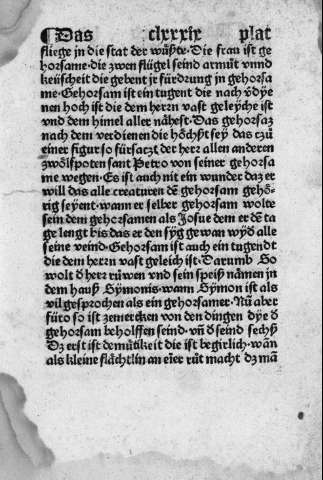 ¶ Das clxxxix plat
fliege jn die stat der wuͤste · Die frau ist ge
horsame · die zwen fluͤgel seind armuͦt vnnd
keuͤscheit die gebent jr fuͤrdrung jn gehorsa
me · Gehorsam ist ein tugent die nach v̄dye
nen hoch ist die dem herrn vast geleyche ist
vnd dem himel aller naͤhest · Das gehorsaz
nach dem verdienen die hoͤchst sey das czuͦ
einer figur so fuͤrsaczt der herr allen anderen
zwoͤlfpoten sant Petro von seiner gehorsa
me wegen · Es ist auch nit ein wunder daz er
will das alle creaturen dē gehorsam gehoͤ
rig seyent · wann er selber gehorsam wolte
sein dem gehorsamen als Josue dem er dē ta
ge lengt bis das er den syg gewan wyd̄ alle
seine veind · Gehorsam ist auch ein tugendt
die dem herrn vast geleich ist · Darumb So
wolt d̄ herr ruͦwen vnd sein speiß naͤmen jn
dem hauß Symonis · wann Symon ist als
vil gesprochen als ein gehorsamer · Nuͦ aber
fuͤro so ist zemercken von den dingen dye d̄
gehorsam beholffen seind · vn̄ d̄ seind sechß
Dz erst ist demuͤtikeit die ist begirlich · wān
als kleine flaͤchtlin an eīer ruͦt macht dz mā